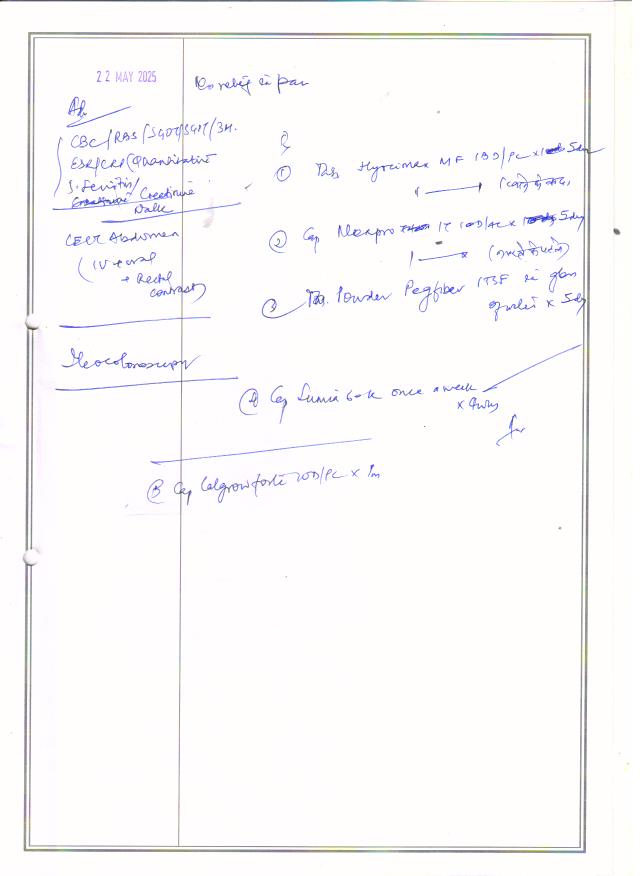 22 MAY 2025
No relief in pain
Adv
CBC/RBS/SGOT/SGPT/
ESR/CRP (Quantitative
S. Ferritin/
Creatinine Creatinine
CECT Abdomen
(IV + oral
+ Rectal
contrast)
Ileocolonoscopy
① Tab MF 1BD/PC x 5day
(खाने के बाद)
② Cap Nexpro 1OD/AC x 5day
(खाने से पहले)
③ Powder Pegfiber 1TSF in glass
of water x 5day
④ Cap Lumia 60k once a week
x 4wks
⑤ Cap Calgrow forte 1OD/PC x 1m